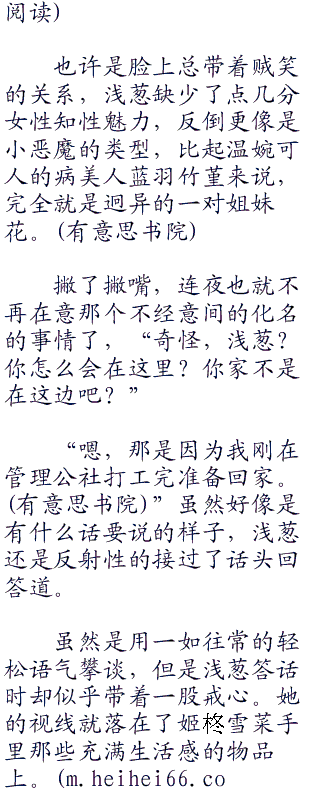 阅读)
也许是脸上总带着贼笑
的关系，浅葱缺少了点几分
女性知性魅力，反倒更像是
小恶魔的类型，比起温婉可
人的病美人蓝羽竹堇来说，
完全就是迥异的一对姐妹
花。(有意思书院)
撇了撇嘴，连夜也就不
再在意那个不经意间的化名
的事情了，“奇怪，浅葱？
你怎么会在这里？你家不是
在这边吧？”
“嗯，那是因为我刚在
管理公社打工完准备回家。
(有意思书院)”虽然好像是
有什么话要说的样子，浅葱
还是反射性的接过了话头回
答道。
虽然是用一如往常的轻
松语气攀谈，但是浅葱答话
时却似乎带着一股戒心。她
的视线就落在了姬柊雪菜手
里那些充满生活感的物品
上。(m.heihei66.co